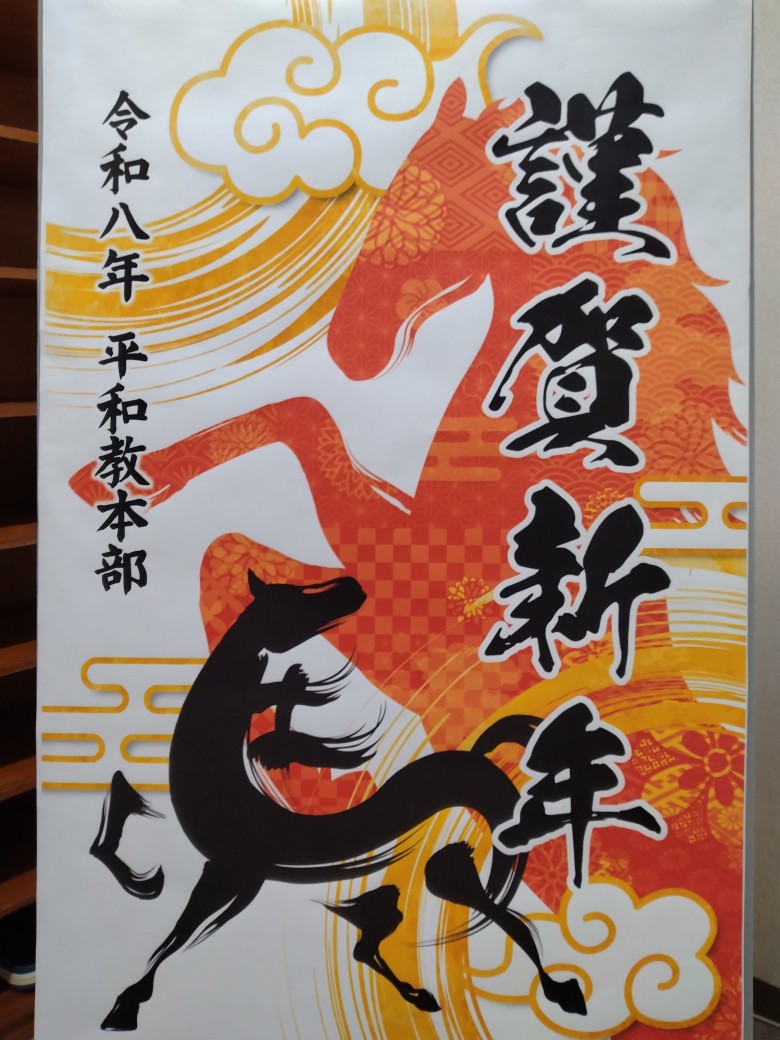 謹賀新年
令和八年 平和教本部